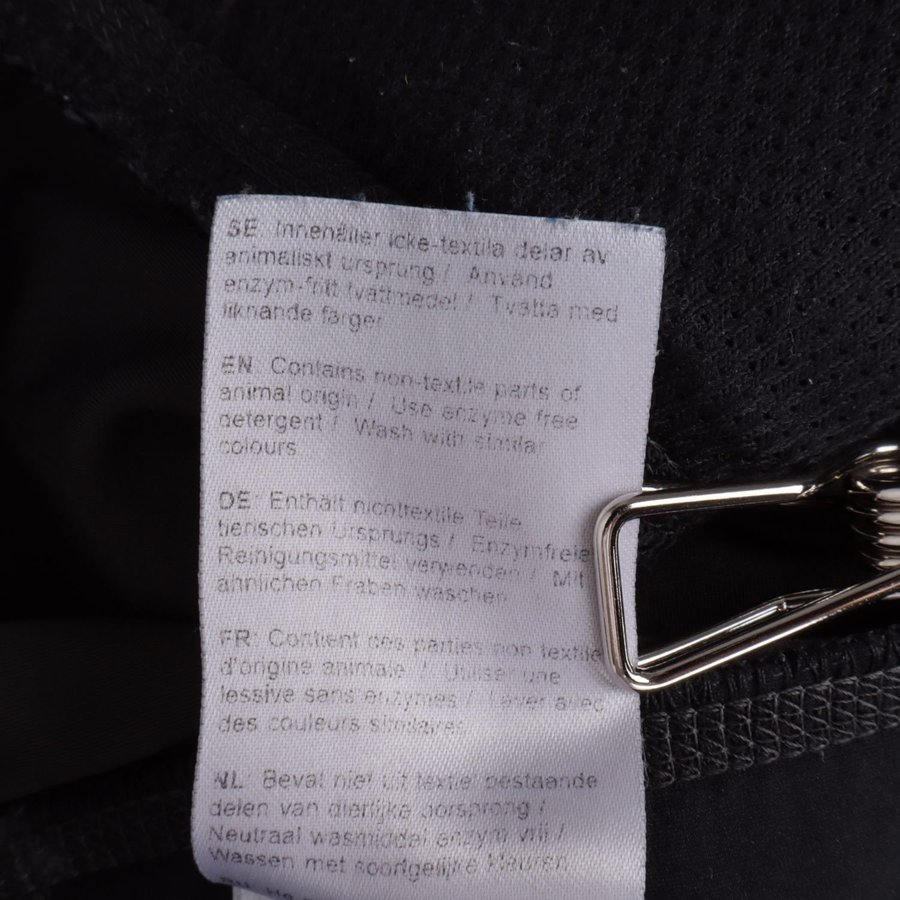 SE: Innehåller icke-textila delar av
animaliskt ursprung / Använd
enzym-fritt tvättmedel / Tvätta med
liknande färger
EN: Contains non-textile parts of
animal origin / Use enzyme free
detergent / Wash with similar
colours
DE: Enthält nichttextile Teile
tierischen Ursprungs / Enzymfreie
Reinigungsmittel verwenden / Mit
ähnlichen Fraben waschen
FR: Contient des parties non textile
d'origine animale / Utiliser une
lessive sans enzymes / Laver avec
des couleurs similaires
NL: Bevat niet uit textiel bestaande
delen van dierlijke oorsprong /
Neutraal wasmiddel enzym vrij /
Wassen met soortgelijke kleuren